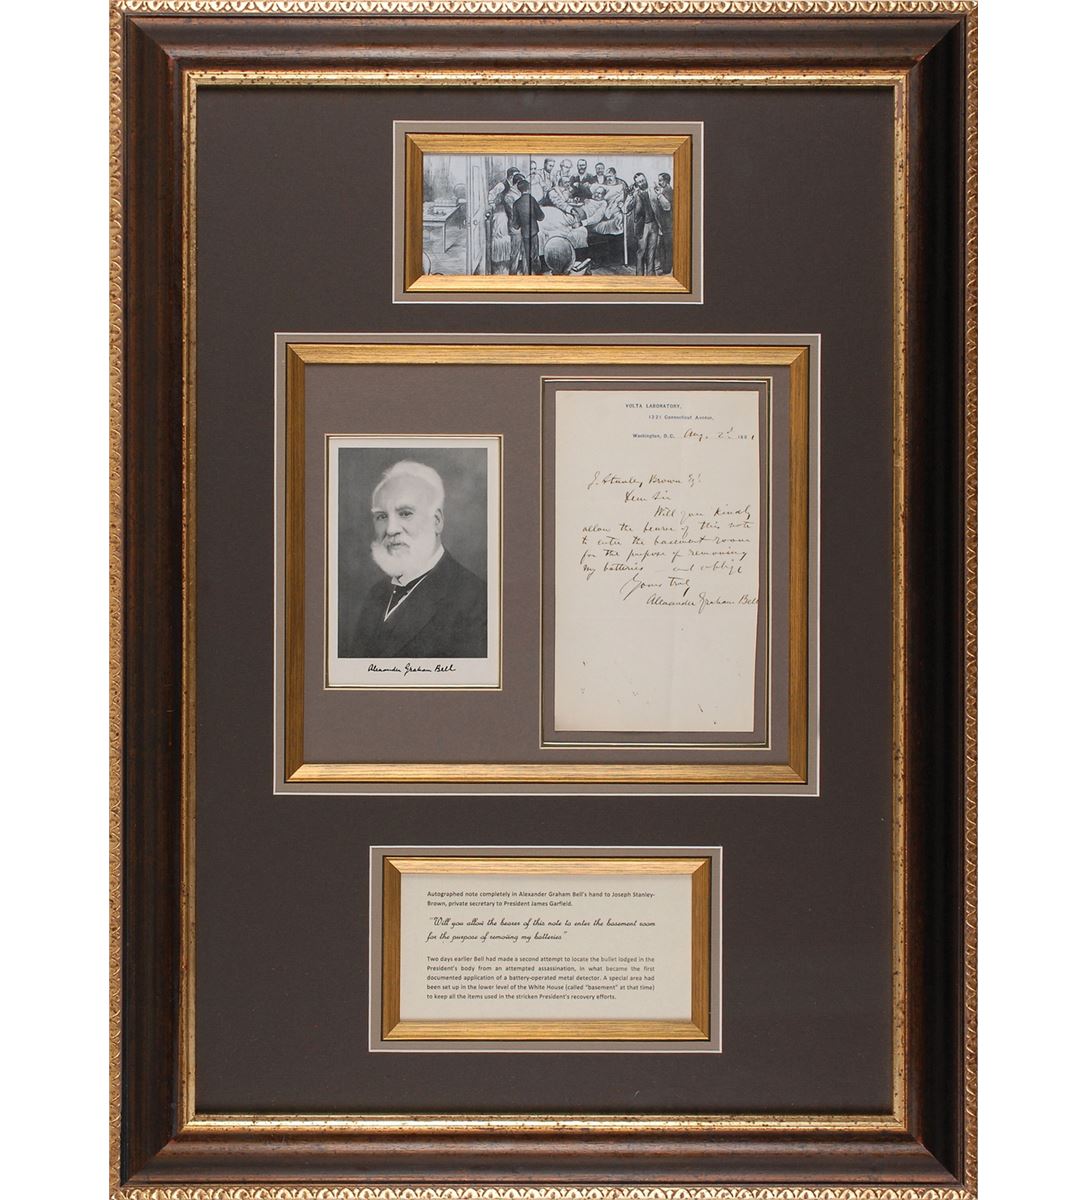 VOLTA LABORATORY,
1221 Connecticut Avenue,
Washington, D.C. Aug. 2d 1881
J. Stanley Brown Esq.
Dear Sir
Will you kindly
allow the bearer of this note
to enter the basement room
for the purpose of removing
my batteries — and oblige
Yours truly
Alexander Graham Bell
Alexander Graham Bell
Autographed note completely in Alexander Graham Bell's hand to Joseph Stanley-
Brown, private secretary to President James Garfield.
"Will you allow the bearer of this note to enter the basement room
for the purpose of removing my batteries"
Two days earlier Bell had made a second attempt to locate the bullet lodged in the
President's body from an attempted assassination, in what became the first
documented application of a battery-operated metal detector. A special area had
been set up in the lower level of the White House (called "basement" at that time)
to keep all the items used in the stricken President's recovery efforts.